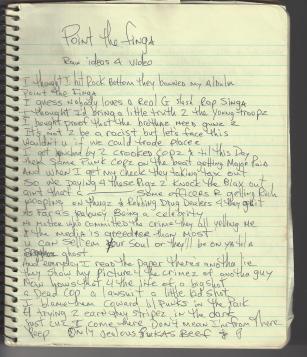 Point the Finga
Raw ideas 4 video
I thought I hit Rock Bottom they banned my Album
Point the Finga
I guess Nobody loves a Real G Rap Singa
I thought I'd bring a little truth 2 the young troopz
I bought proof that the brothaz
It's not 2 be a racist but let's face this
Wouldn't u if we could trade places
2 crooked copz & til this Day
them Same Punk copz on the beat getting Major Paid
And when I get my check they taking tax out
So we paying 4 these Pigz 2 Knock the Blax out
Ain't that a officers R getting Rich
on thugz & Robbing Drug Dealers 4 they
As far as Being a celebrity
No matter who committed the crime they all yelling me
& the media is greedier than most
u can Sell'em your Soul or they'll be on ya til a
ghost
And everyday I read the Paper there's anotha lie
they Show my Picture 4 the crimez of anotha guy
Now how's that 4 the life of a bigshot
a Dead cop a lawsuit a little kid shot
Coward lil Punks in the Park
trying 2 earn they stripez in the dark
Just cuz I come here Don't mean I'm from here
Beef